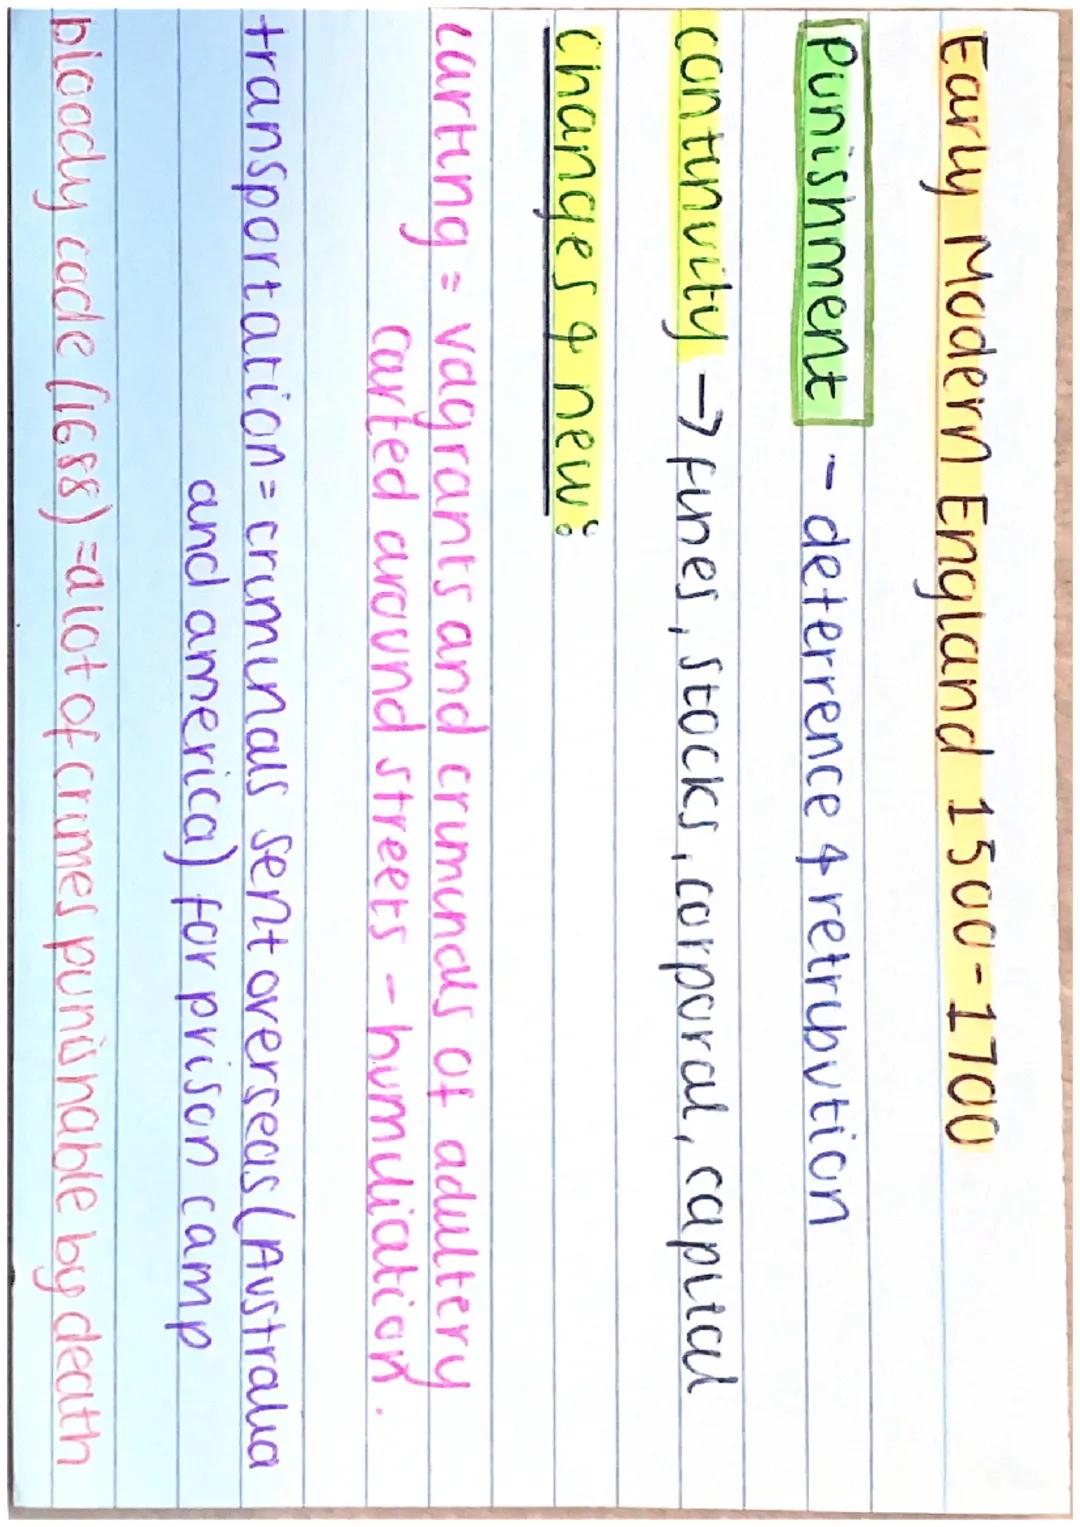 Early Modern England 1500-1700
Punishment - deterrence & retribution
continuity → fines, stocks, corporal, capital
Changes & new:
carting = vagrants and criminals of adultery
carted around streets - humiliation.
transportation = criminals sent overseas (Australia
and america) for prison camp
bloody code (1688) = a lot of crimes punishable by death